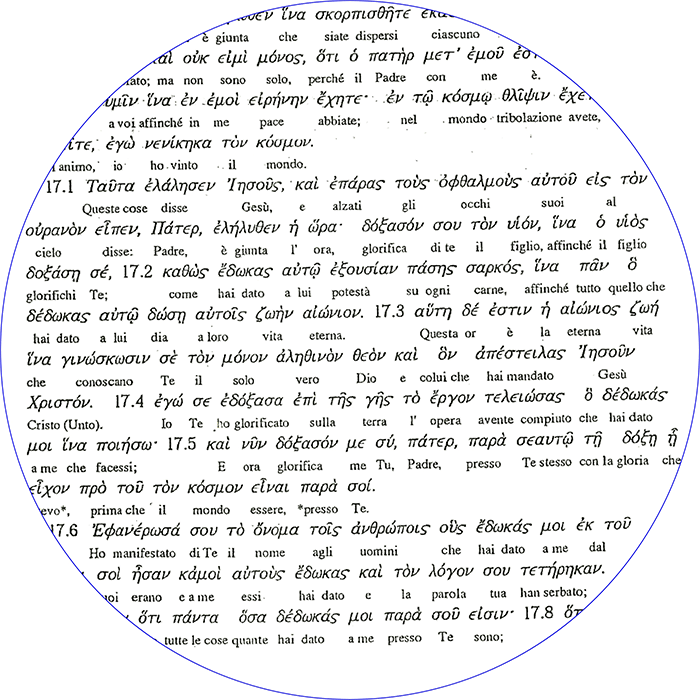 ἵνα σκορπισθῆτε
è giunta che siate dispersi ciascuno
καὶ οὐκ εἰμὶ μόνος, ὅτι ὁ πατὴρ μετ' ἐμοῦ
ma non sono solo, perché il Padre con me è.
ἵνα ἐν ἐμοὶ εἰρήνην ἔχητε· ἐν τῷ κόσμῳ θλῖψιν
a voi affinché in me pace abbiate; nel mondo tribolazione avete,
ἐγὼ νενίκηκα τὸν κόσμον.
animo, io ho vinto il mondo.
17.1 Ταῦτα ἐλάλησεν Ἰησοῦς, καὶ ἐπάρας τοὺς ὀφθαλμοὺς αὐτοῦ εἰς τὸν
Queste cose disse Gesù, e alzati gli occhi suoi al
οὐρανὸν εἶπεν, Πάτερ, ἐλήλυθεν ἡ ὥρα· δόξασόν σου τὸν υἱόν, ἵνα ὁ υἱὸς
cielo disse: Padre, è giunta l' ora, glorifica di te il figlio, affinché il figlio
δοξάσῃ σέ, 17.2 καθὼς ἔδωκας αὐτῷ ἐξουσίαν πάσης σαρκός, ἵνα πᾶν ὃ
glorifichi Te; come hai dato a lui potestà su ogni carne, affinché tutto quello che
δέδωκας αὐτῷ δώσῃ αὐτοῖς ζωὴν αἰώνιον. 17.3 αὕτη δέ ἐστιν ἡ αἰώνιος ζωή
hai dato a lui dia a loro vita eterna. Questa or è la eterna vita
ἵνα γινώσκωσιν σὲ τὸν μόνον ἀληθινὸν θεὸν καὶ ὃν ἀπέστειλας Ἰησοῦν
che conoscano Te il solo vero Dio e colui che hai mandato Gesù
Χριστόν. 17.4 ἐγώ σε ἐδόξασα ἐπὶ τῆς γῆς τὸ ἔργον τελειώσας ὃ δέδωκάς
Cristo (Unto). Io Te ho glorificato sulla terra l' opera avente compiuto che hai dato
μοι ἵνα ποιήσω· 17.5 καὶ νῦν δόξασόν με σύ, πάτερ, παρὰ σεαυτῷ τῇ δόξῃ ᾗ
a me che facessi; E ora glorifica me Tu, Padre, presso Te stesso con la gloria che
εἶχον πρὸ τοῦ τὸν κόσμον εἶναι παρὰ σοί.
evo*, prima che il mondo essere, *presso Te.
17.6 Ἐφανέρωσά σου τὸ ὄνομα τοῖς ἀνθρώποις οὓς ἔδωκάς μοι ἐκ τοῦ
Ho manifestato di Te il nome agli uomini che hai dato a me dal
σοὶ ἦσαν κἀμοὶ αὐτοὺς ἔδωκας καὶ τὸν λόγον σου τετήρηκαν.
erano e a me essi hai dato e la parola tua han serbato;
ὅτι πάντα ὅσα δέδωκάς μοι παρὰ σοῦ εἰσιν· 17.8
tutte le cose quante hai dato a me presso Te sono;